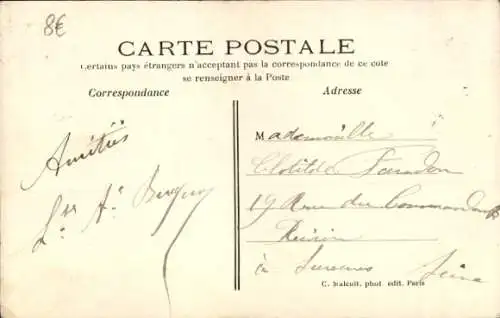 8€
CARTE POSTALE
Certains pays étrangers n'acceptant pas la correspondance de ce cote
se renseigner à la Poste
Correspondance
Adresse
Amitiés
Mademoiselle
Clotilde
19 Rue du Commandant
Rivière
à Suresnes
Seine
C. Malcuit, phot edit. Paris